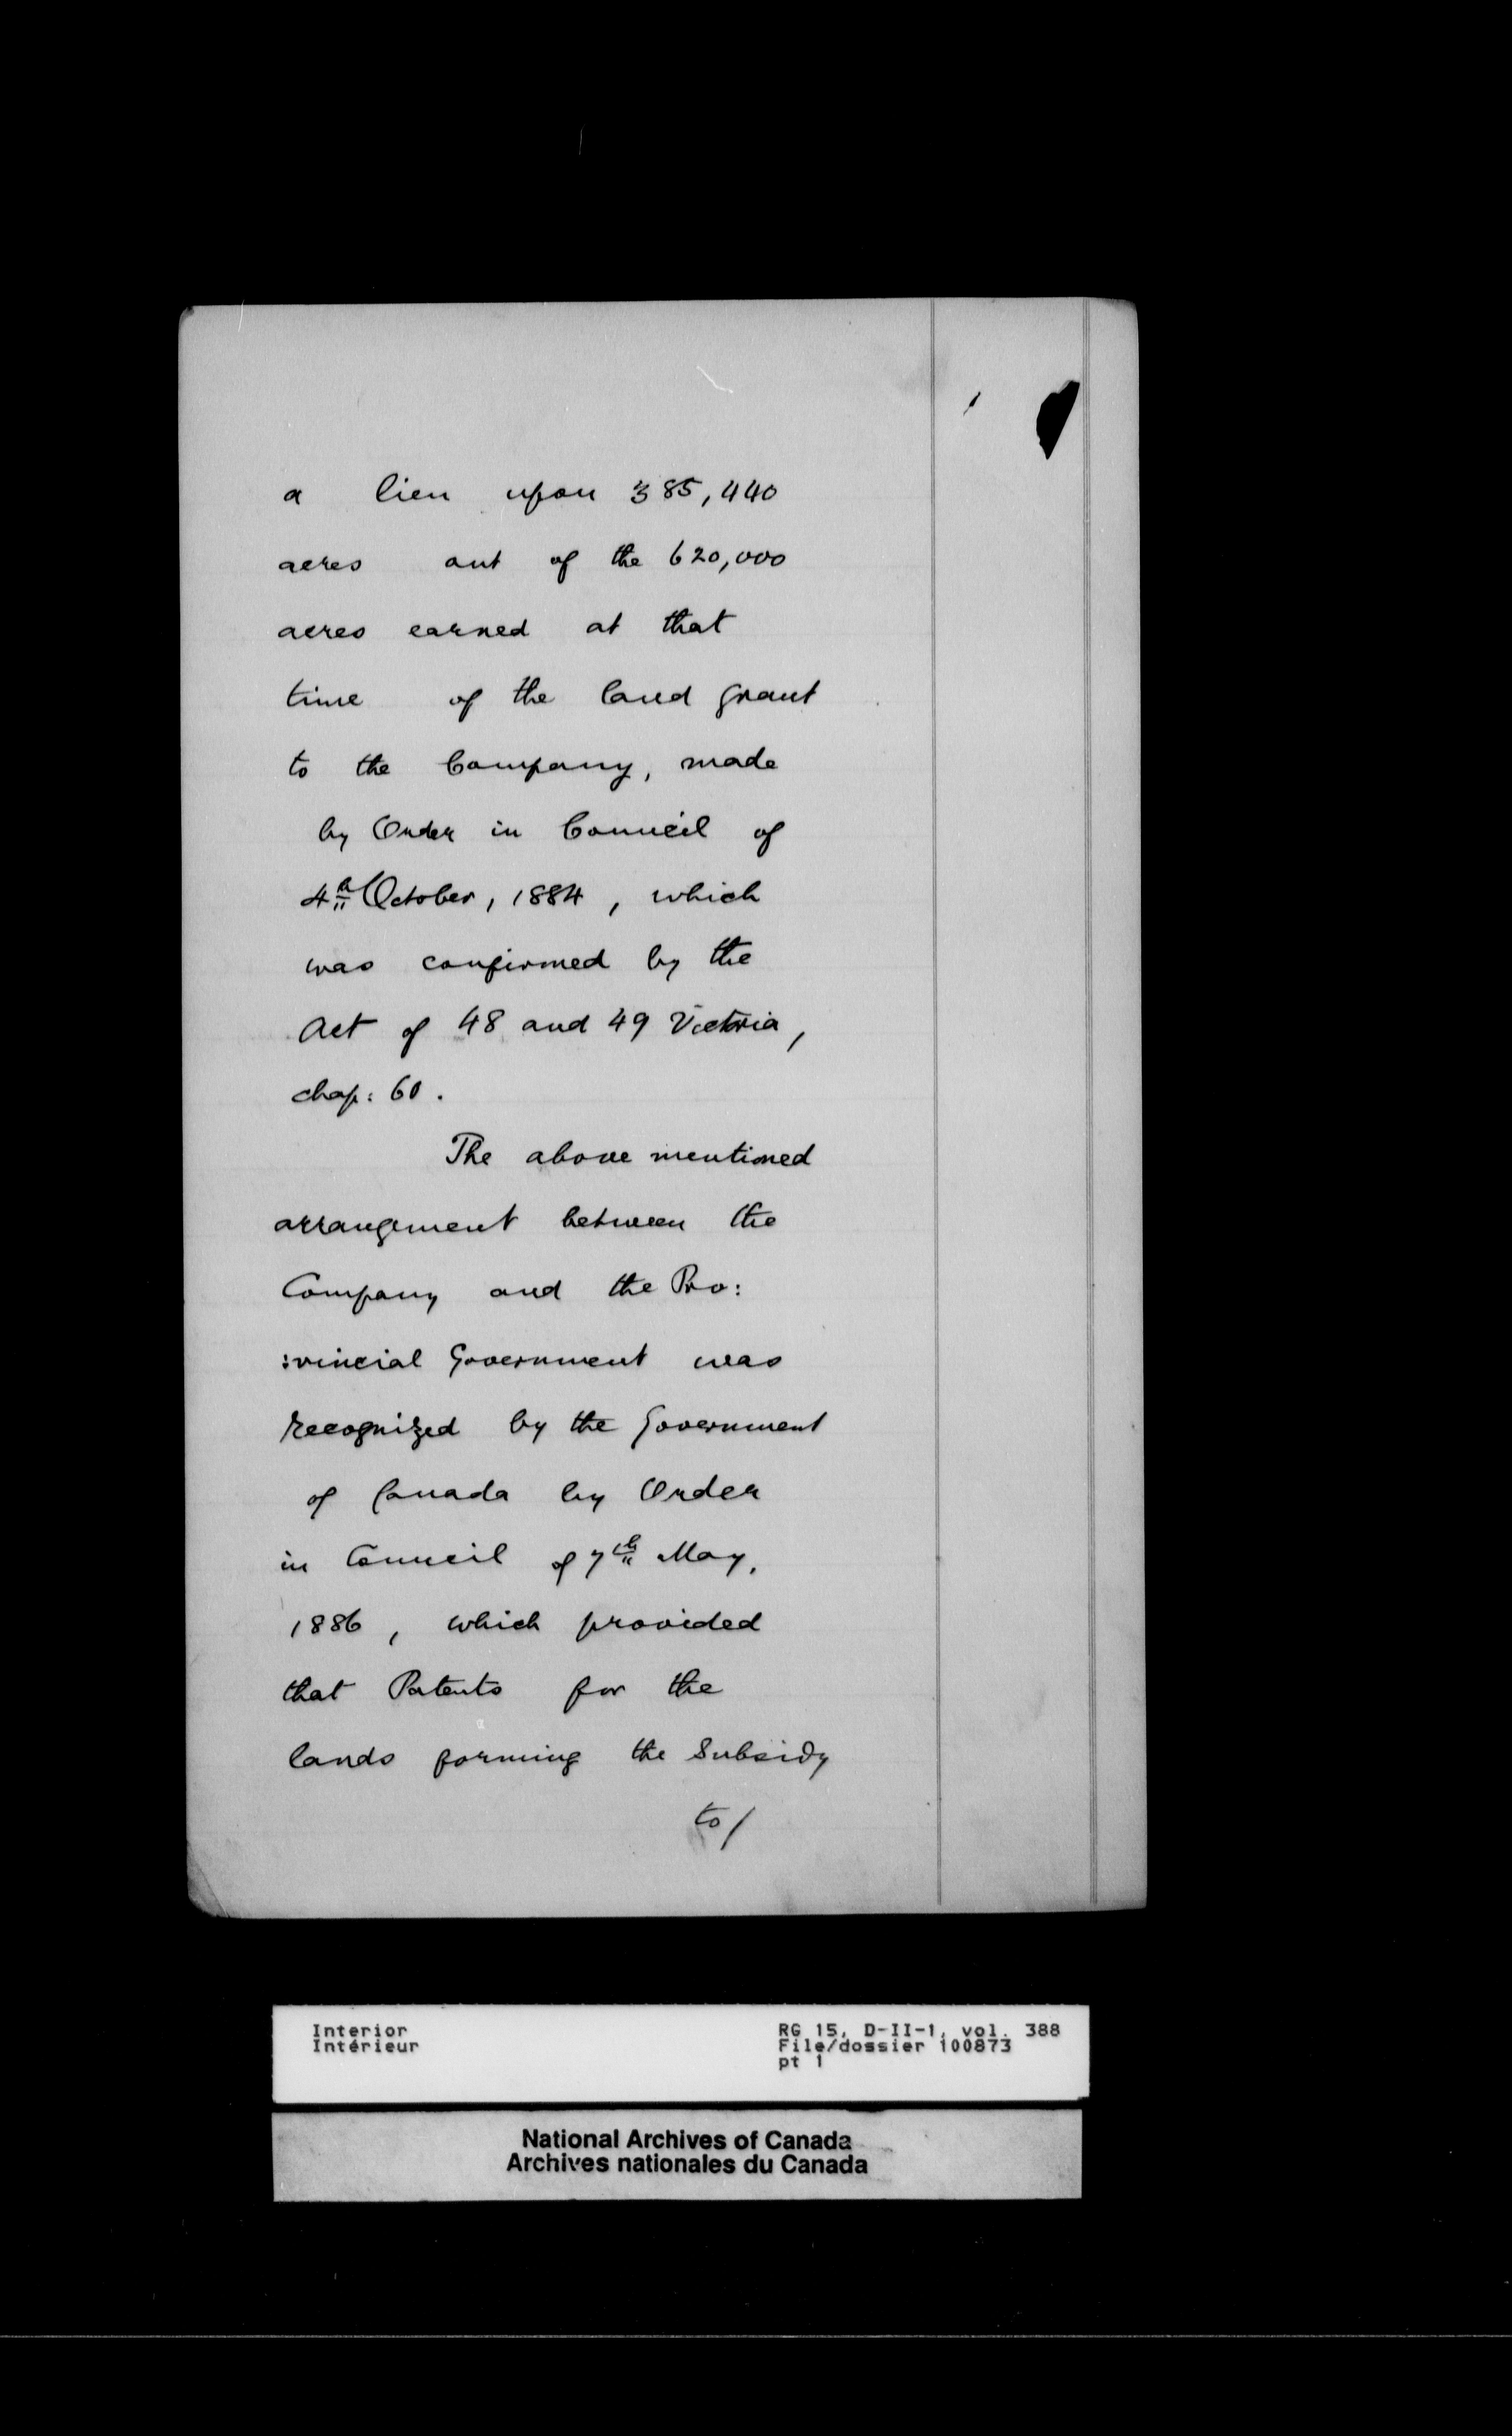 a lien upon 385,440
acres out of the 620,000
acres earned at that
time of the land grant
to the Company, made
by Order in Council of
4th October, 1884, which
was confirmed by the
Act of 48 and 49 Victoria,
chap: 60.
The above mentioned
arrangement between the
Company and the Pro:
:vincial Government was
recognized by the Government
of Canada by Order
in Council of 7th May,
1886, which provided
that Patents for the
lands forming the Subsidy
to/
Interior
Intérieur
RG 15, D-II-1, vol. 388
File/dossier 100873
pt 1
National Archives of Canada
Archives nationales du Canada